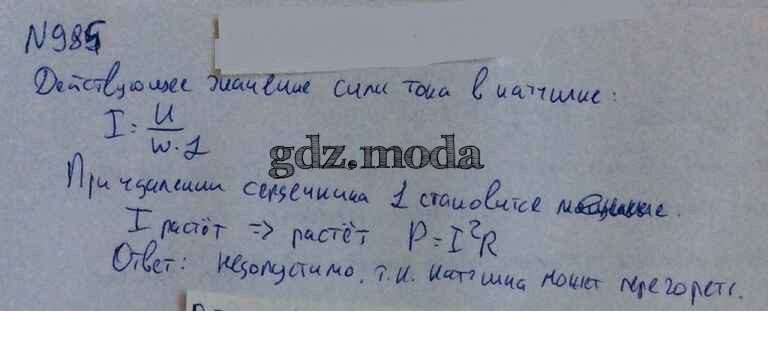 N985
Действующее значение силы тока в катушке:
I = U / w·L
gdz.moda
При удалении сердечника L становится меньше.
I растёт => растёт P = I²R
Ответ: недопустимо, т.к. катушка может перегореть.